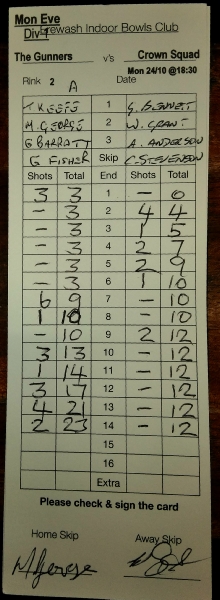 Mon Eve
Div 1
Erewash Indoor Bowls Club
The Gunners v's Crown Squad
Mon 24/10 @18:30
Rink 2 A Date
T. KEEFE 1 G. BENNETT
M. GEORGE 2 W. GRANT
G BARRATT 3 A. ANDERSON
G FISHER Skip C. STEVENSON
Shots Total End Shots Total
3 3 1 - 0
- 3 2 4 4
- 3 3 1 5
- 3 4 2 7
- 3 5 2 9
- 3 6 1 10
6 9 7 - 10
1 10 8 - 10
- 10 9 2 12
3 13 10 - 12
1 14 11 - 12
3 17 12 - 12
4 21 13 - 12
2 23 14 - 12
15
16
Extra
Please check & sign the card
Home Skip Away Skip
M George